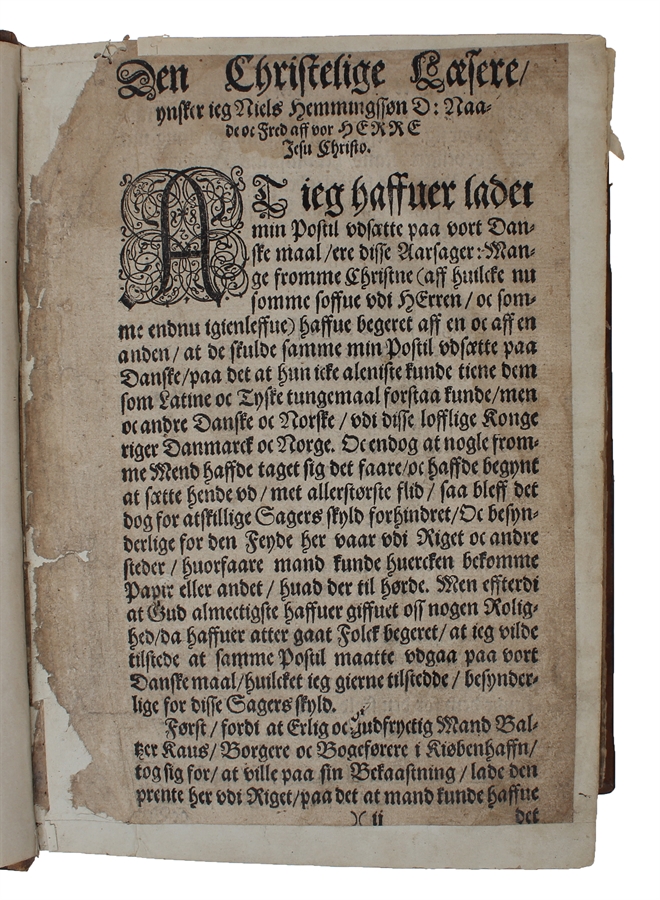 Den Christelige Læsere/
ynsker ieg Niels Hemmingssøn D: Naa-
de oc Fred aff vor HERRE
Jesu Christo.
AT ieg haffuer ladet
min Postil vdsætte paa vort Dan-
ske maal/ere disse Aarsager: Man-
ge fromme Christne (aff huilcke nu
somme soffue vdi HErren/ oc som-
me endnu igienleffue) haffue begeret aff en oc aff en
anden/ at de skulde samme min Postil vdsætte paa
Danske/paa det at hun icke aleniste kunde tiene dem
som Latine oc Tyske tungemaal forstaa kunde/men
oc andre Danske oc Norske/ vdi disse lofflige Konge
riger Danmarck oc Norge. Oc endog at nogle from-
me Mend haffde taget sig det faare/oc haffde begynt
at sætte hende vd/ met allerstørste flid/ saa bleff det
dog for atskillige Sagers skyld forhindret/Oc besyn-
derlige for den Feyde her vaar vdi Riget oc andre
steder/ huorfaare mand kunde huercken bekomme
Papir eller andet/ huad der til hørde. Men effterdi
at Gud almectigste haffuer giffuet oss nogen Rolig-
hed/da haffuer atter gaat Folck begeret/at ieg vilde
tilstede at samme Postil maatte vdgaa paa vort
Danske maal/huilcket ieg gierne tilstedde/ besynder-
lige for disse Sagers skyld.
Først/ fordi at Erlig oc Gudfryctig Mand Bal-
tzer Kaus/ Borgere oc Bogeførere i Kiøbenhaffn/
tog sig for/ at ville paa sin Bekaastning/ lade den
prente her vdi Riget/paa det at mand kunde haffue
)( ij det